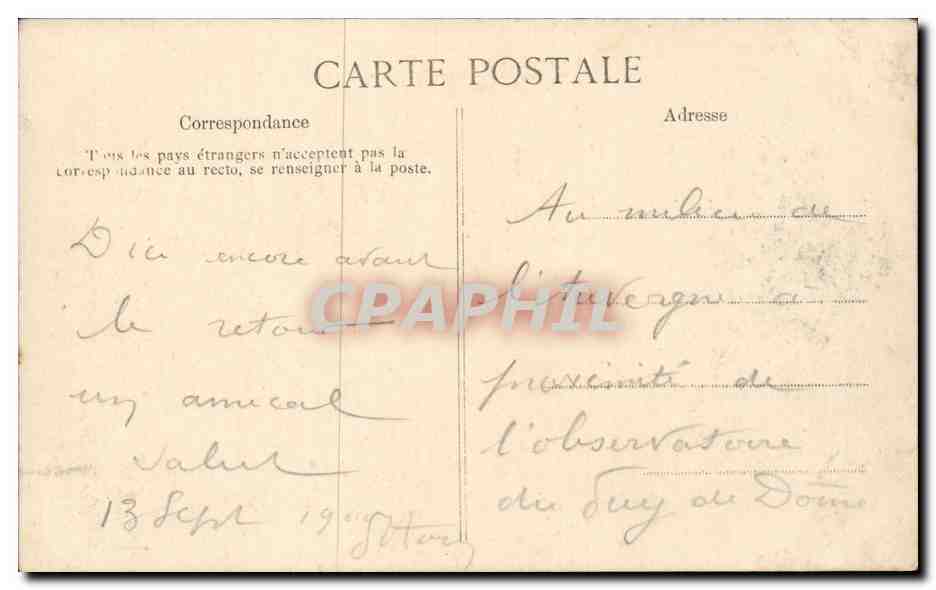 CARTE POSTALE
Correspondance
Tous les pays étrangers n'acceptent pas la
correspondance au recto, se renseigner à la poste.
D'ici encore avant
le retour
un amical
salut
13 Sept 19
Adresse
Au milieu de
l'Auvergne a
proximité de
l'observatoire
du Puy de Dôme
CPAPHIL